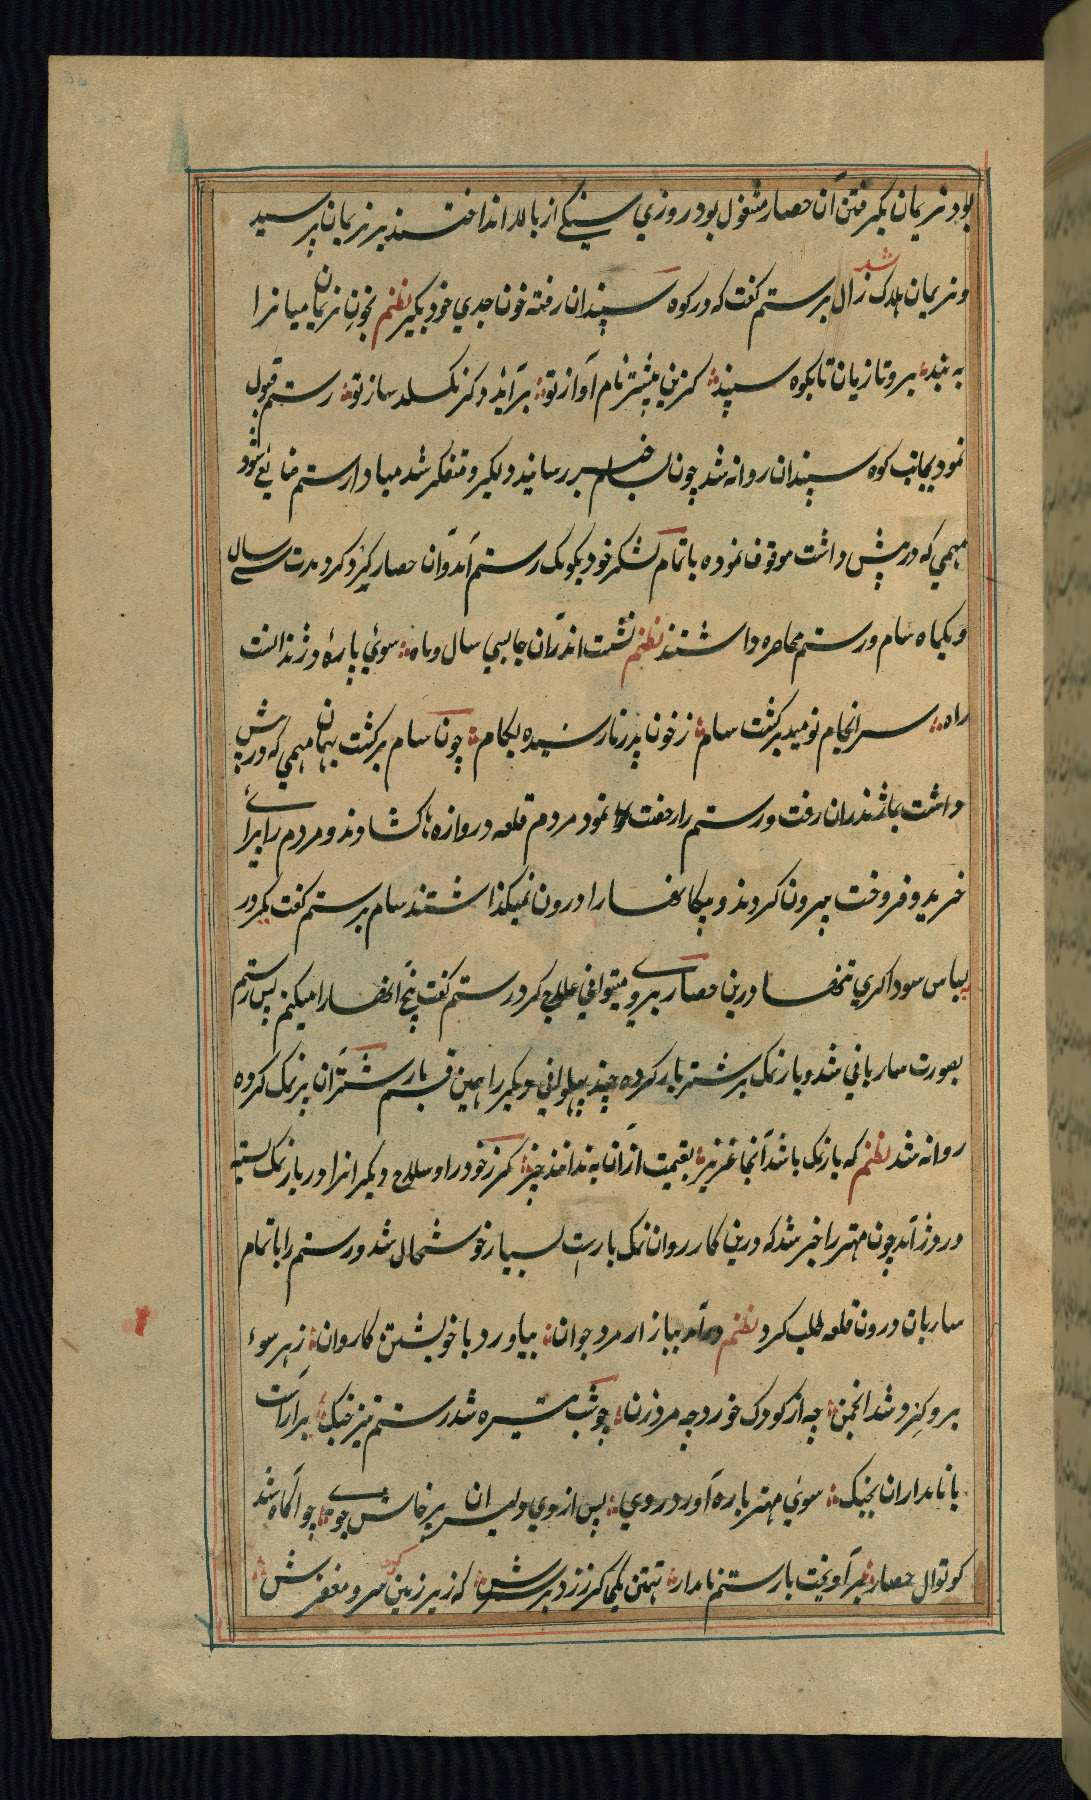 بود نریمان بگرفتن آن حصار مشغول بود روزی سنگی از بالا انداختند بر نریمان رسید
و نریمان هلاک شد زال برستم گفت که در کوه سپندان رفته خون جدی خود بگیر نظم بخون نریمان میانرا
به بند برو تازیان تا بکوه سپند کزین پیشتر نام آواز تو برآید دگر نگسلد ساز تو رستم قبول
نمود بجانب کوه سپندان روانه شد چون بسام خبر رسانید دلگیر و متفکر شد مبادا رستم ضائع شود
مهمی که در پیش داشت موقوف نموده باتمام لشکر خود بکومک رستم آمد و آن حصار گیرد کرد مدت سی سال
و یکماه سام و رستم محاصره داشتند نظم نشست اندران جا بسی سال و ماه سوی باره دژ ندانست
راه سرانجام نومید برگشت سام ز خون پدر نارسیده بکام چون سام برگشت بهمان مهمی که در پیش
داشت بماژندران رفت و رستم را رخصت نمود مردم قلعه دروازه ها کشادند و مردم را برای
خرید و فروخت بیرون کردند و بیگانها را درون نمیگذاشتند سام برستم گفت که در
لباس سوداگری تنها درین حصار بروی میتوانی علاج کرد رستم گفت پنج انها را میکنم پس رستم
بصورت ساربانی شد و بار نمک بر شتر بار کرده چند پهلوانی دیگر را همین قسم بار شتران پر نمک کرده
روانه شد نظم که بار نمک باشد آنجا عزیز بقیمت ازان به ندانند چیز گرز خود را و سلاح دیگرانرا در بار نمک بسته
در دژ آمد چون مهتر را خبر شد که درین کاروان نمک بارست بسیار خوشحال شد و رستم را باتمام
ساربان درون قلعه طلب کرد نظم درآمد ببازار مرد جوان بیاورد با خویشتن کاروان ز هر سوء
برو گرد شد انجمن چه از کودک خورد چه مرد و زن چو شب تیره شد رستم تیز چنگ برآراست
با نامداران بجنگ سوی مهتر باره آورد روی پس از وی دلیران پرخاش جوی چو آگاه شد
کوتوال حصار برآویخت با رستم نامدار تهمتن یکی گرز زد بر سرش که زیر زمین کرد سر و مغفرش